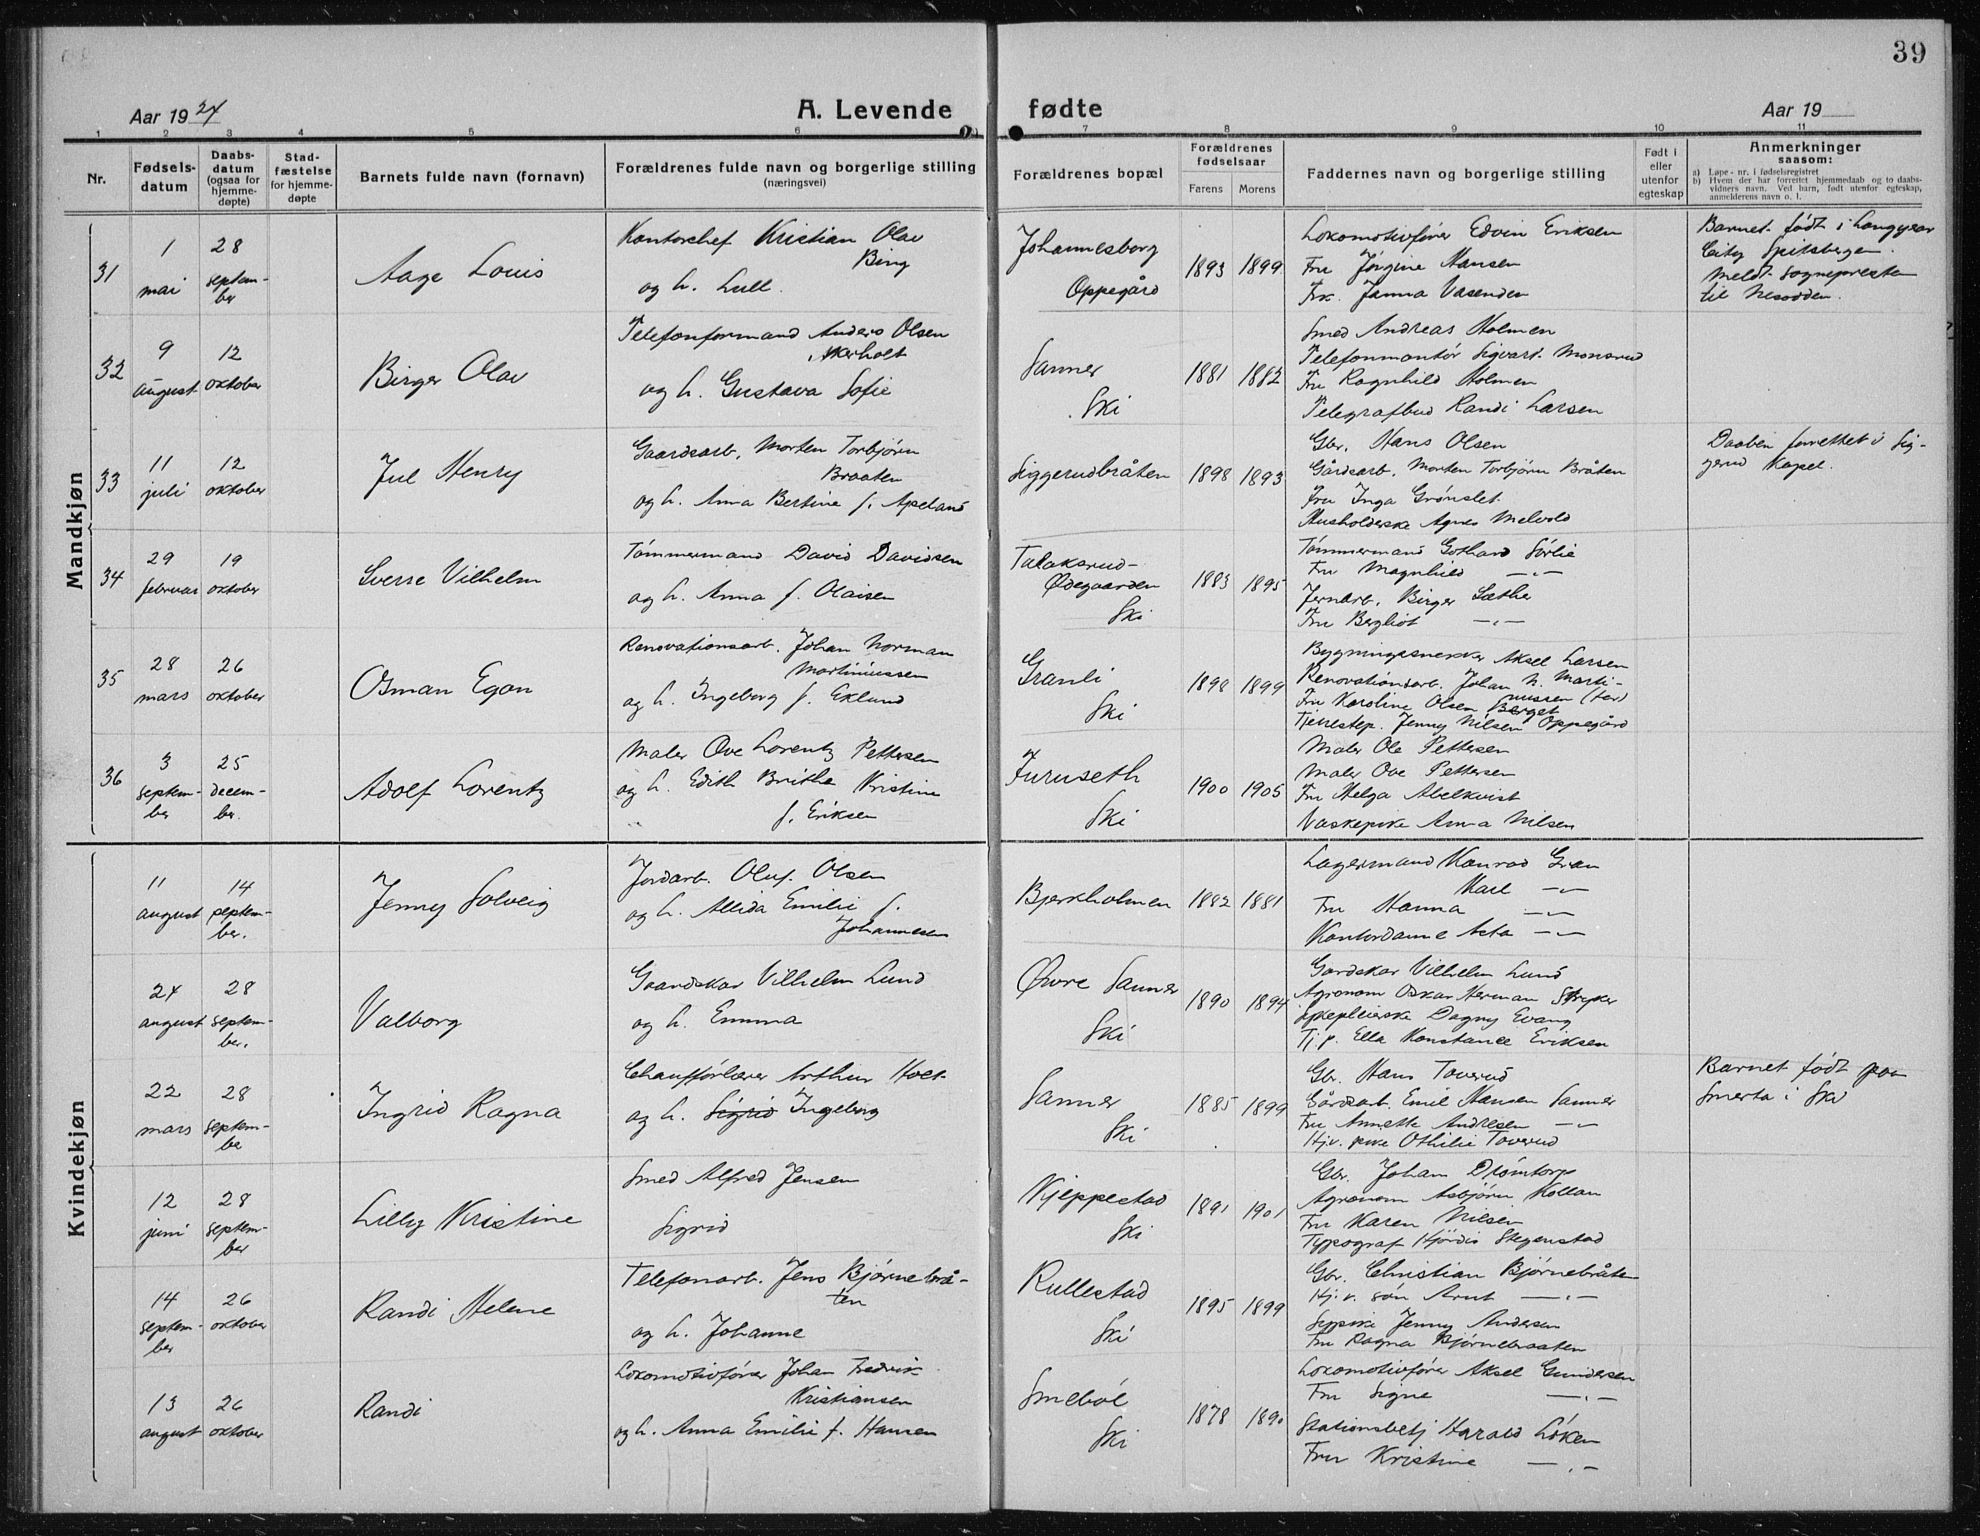 39
Aar 1924
A. Levende
fødte
Aar 19
1 2 3 4 5 6 7 8 9 10 11
Nr.
Fødsels-
datum
Daabs-
datum
(ogsaa for
hjemme-
døpte)
Stad-
fæstelse
for hjemme-
døpte
Barnets fulde navn (fornavn)
Forældrenes fulde navn og borgerlige stilling
(næringsvei)
Forældrenes bopæl
Forældrenes
fødselsaar
Farens
Morens
Faddernes navn og borgerlige stilling
Født i
eller
utenfor
egteskap
Anmerkninger
saasom:
a) Løpe-nr. i fødselsregistret
b) Hvem der har forrettet hjemmedaab og to daabs-
vidners navn. Ved barn, født utenfor egteskap,
anmelderens navn o. l.
Mandkjøn
31
1
mai
28
septem-
ber
Aage Louis
Kontorchef Kristian Olav
Berg
og h. Lull.
Johannesborg
Oppegård
1893 1899
Lokomotivfører Edvin Eriksen
Fru Jørgine Hansen
Frk. Janna Vasenden
Barnet født i Longyear
City Spitsbergen.
Meldt sogneprest
til Nesodden.
32
9
august
12
oktober
Birger Olav
Telefonformand Anders Olsen
Askerholt
og h. Gustava Sofie
Sanner
Ski
1881 1882
Smed Andreas Holmen
Telefonmontør Sigvart Monsrud
Fru Ragnhild Holmen
Telegrafbud Randi Larsen
33
11
juli
12
oktober
Jul Henry
Gaardsarb. Morten Torbjørn
Braaten
og h. Anna Bertine f. Apeland
Siggerudbråten
1898 1893
Gbr. Hans Olsen
Gårdsarb. Morten Torbjørn Bråten
Fru Inga Grønslet
Husholderske Agnes Melvold
Daaben forrettet i Sig-
gerud Kapel.
34
29
februar
19
oktober
Sverre Vilhelm
Tømmermand David Davidsen
og h. Anna f. Olaisen
Talaksrud-
Ødegaarden
Ski
1883 1895
Tømmermand Gothard Sørlie
Fru Magnhild —„—
Jernarb. Birger Sæther
Fru Bergliot —„—
35
28
mars
26
oktober
Osman Egon
Renovationsarb. Johan Norman
Martiniussen
og h. Ingeborg f. Eklund
Granli
Ski
1898 1899
Bygningssnekker Aksel Larsen
Renovationsarb. Johan N. Marti-
nussen (far)
Fru Karoline Olsen Berget
Tjenestep. Jenny Nilsen Oppegård
36
3
septem-
ber
25
decem-
ber.
Adolf Lorentz
Maler Ove Lorentz Pettersen
og h. Edith Brithe Kristine
f. Eriksen
Furuseth
Ski
1900 1905
Maler Ole Pettersen
Maler Ove Pettersen
Fru Helga Abelkvist
Vaskepike Anna Nilsen
Kvindekjøn
11
august
14
septem-
ber.
Jenny Solveig
Jordarb. Oluf Olsen
og h. Allida Emilie f.
Johannesen
Bjerkholmen
1882 1881
Lagermand Konrad Gran
Karl —„—
Fru Hanna —„—
Kontordame Asta —„—
24
august
28
septem-
ber.
Valborg
Gaardskar Vilhelm Lund
og h. Emma
Øvre Sanner
Ski
1890 1894
Gardskar Vilhelm Lund
Agronom Oskar Herman Stryker
Sykepleierske Dagny Evang
Tj.p. Ella Konstance Eriksen
22
mars
28
septem-
ber
Ingrid Ragna
Chaufførlærer Arthur Holt
og h. Sigrid Ingeborg
Sanner
Ski
1885 1899
Gbr. Hans Taverud
Gårdsarb. Emil Hansen Sanner
Fru Annette Andresen —„—
Hj.v. pike Othilie Taverud
Barnet født paa
Smerta i Ski
12
juni
28
septem-
ber
Lilly Kristine
Smed Alfred Jensen
Sigrid
Kjeppestad
Ski
1891 1901
Gbr. Johan Drømtorp
Agronom Asbjørn Kollan
Fru Karen Nilsen
Typograf Hjørdis Stegenstad
14
septem-
ber
26
oktober
Randi Helene
Telefonarb. Jens Bjørnebrå-
ten
og h. Johanne
Rullestad
Ski
1895 1899
Gbr. Christian Bjørnebråten
Hj.v. søn Arnt —„—
Sypike Jenny Andersen
Fru Ragna Bjørnebraaten
13
august
26
oktober
Randi
Lokomotivfører Johan Fredrik
Kristiansen
og h. Anna Emilie f. Hansen
Smebøl
Ski
1878 1890
Lokomotivfører Aksel Gundersen
Fru Signe —„—
Stationsbetj Harald Løken
Fru Kristine —„—